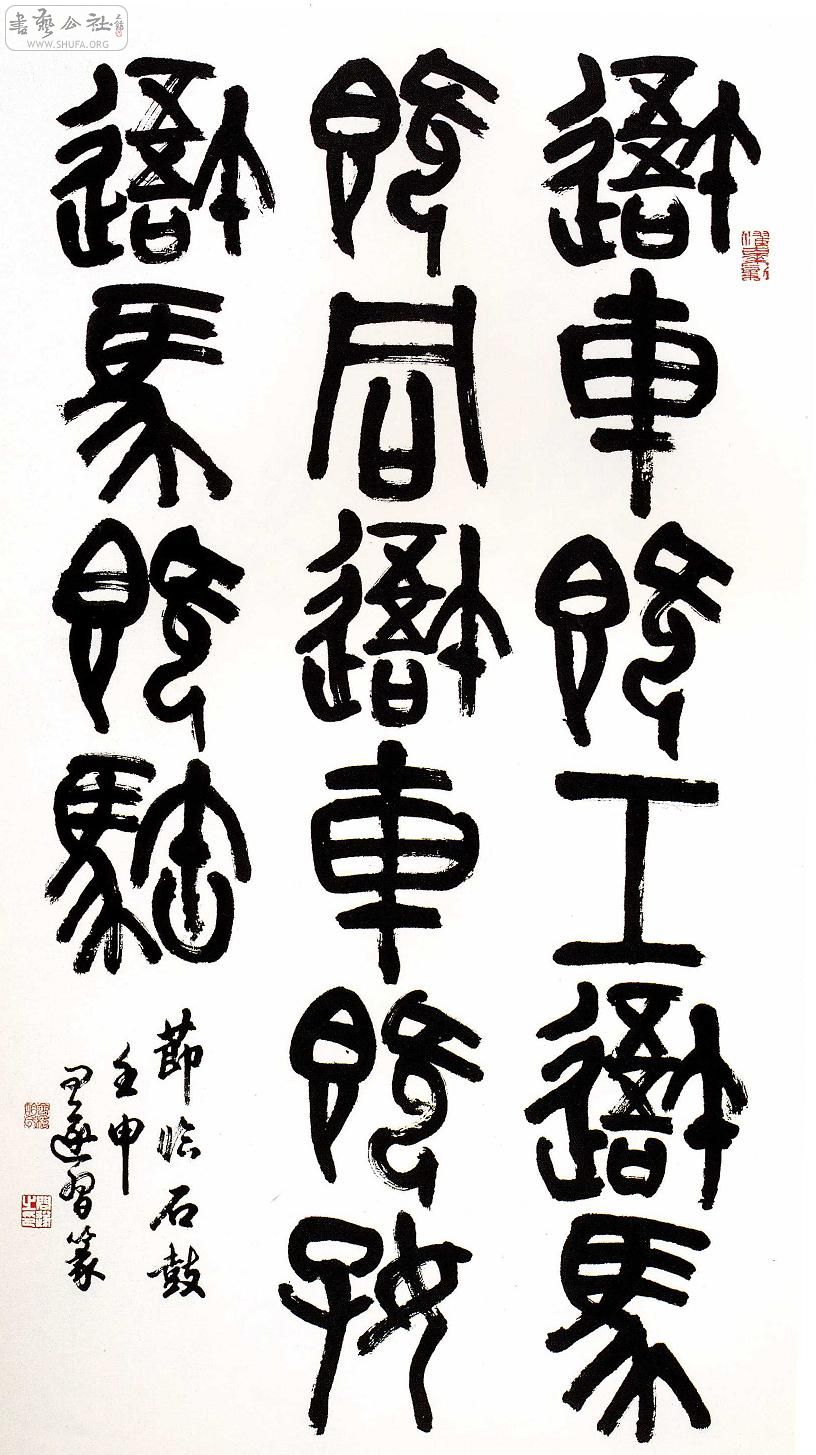 避車既工避馬
既同避車既好
避馬既䮤
節臨石鼓
壬申
習篆
書藝公社
WWW.SHUFA.ORG